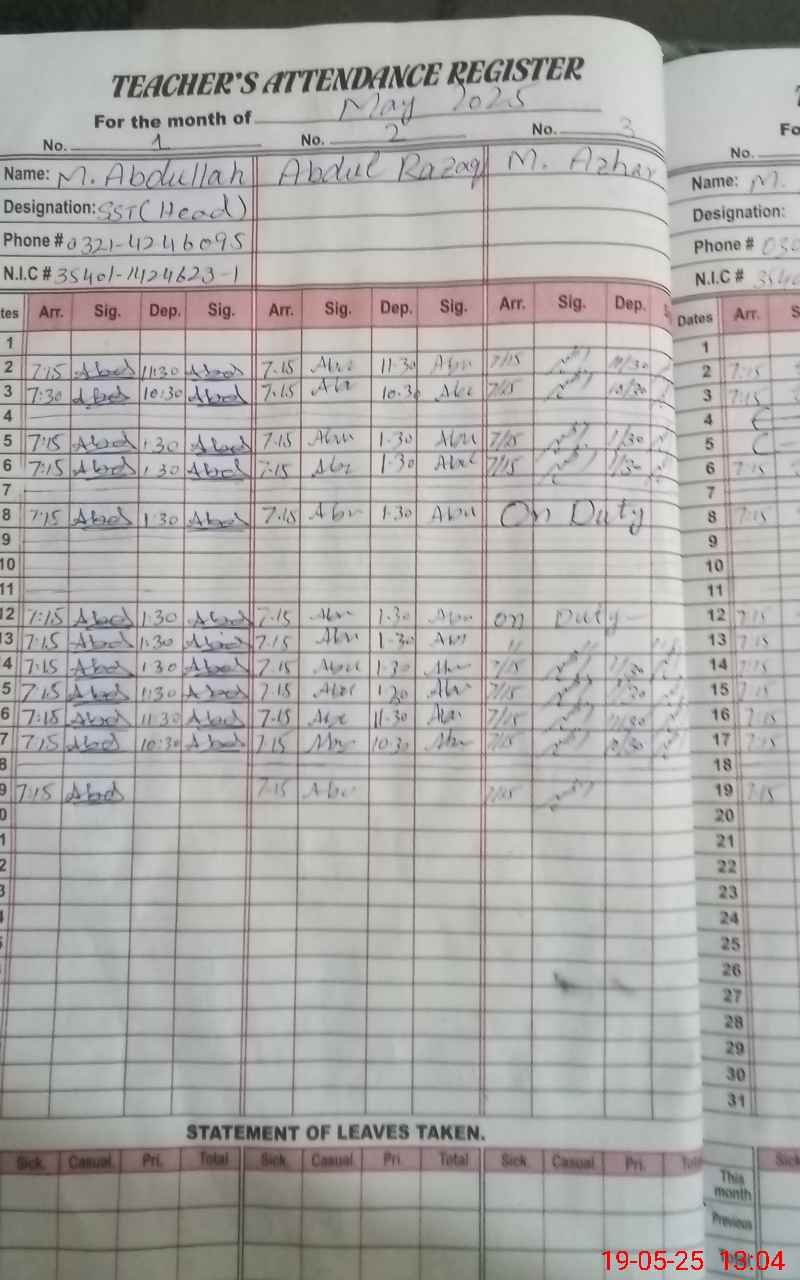 TEACHER'S ATTENDANCE REGISTER
For the month of May 2025
No. 1 No. 2 No. 3
Name: M. Abdullah Abdul Razaq M. Azhar
Designation: SST (Head)
Phone # 0321-4246095
N.I.C # 35401-1424623-1
tes Arr. Sig. Dep. Sig. Arr. Sig. Dep. Sig. Arr. Sig. Dep. S
1
2 7:15 Abd 11:30 Abd 7.15 11.30 7/15 11/30
3 7:30 Abd 10:30 Abd 7.15 10.30 7/15 10/30
4
5 7:15 Abd 1:30 Abd 7.15 1.30 7/15 1/30
6 7:15 Abd 1:30 Abd 7:15 1.30 7/15 1/30
7
8 7:15 Abd 1:30 Abd 7.15 1.30 On Duty
9
10
11
12 7:15 Abd 1:30 Abd 7.15 1.30 on Duty
13 7:15 Abd 1:30 Abd 7.15 1.30 "
4 7:15 Abd 1:30 Abd 7.15 1.30 7/15 1/30
5 7:15 Abd 1:30 Abd 7.15 1.30 7/15 1/30
6 7:15 Abd 11:30 Abd 7.15 11.30 7/15 11/30
7 7:15 Abd 10:30 Abd 7.15 10.30 7/15 10/30
8
9 7:15 Abd 7.15 7/15
0
1
2
3
STATEMENT OF LEAVES TAKEN.
Sick. Casual. Pri. Total Sick. Casual. Pri. Total Sick. Casual. Pri. Total
Fo
No.
Name: M.
Designation:
Phone # 030
N.I.C # 354
Dates Arr. S
1
2 7:15
3 7:15
4
5
6 7:15
7
8 7:15
9
10
11
12 7:15
13 7:15
14 7:15
15 7:15
16 7:15
17 7:15
18
19 7:15
20
21
22
23
24
25
26
27
28
29
30
31
Sick
This
month
Previous
19-05-25 13:04